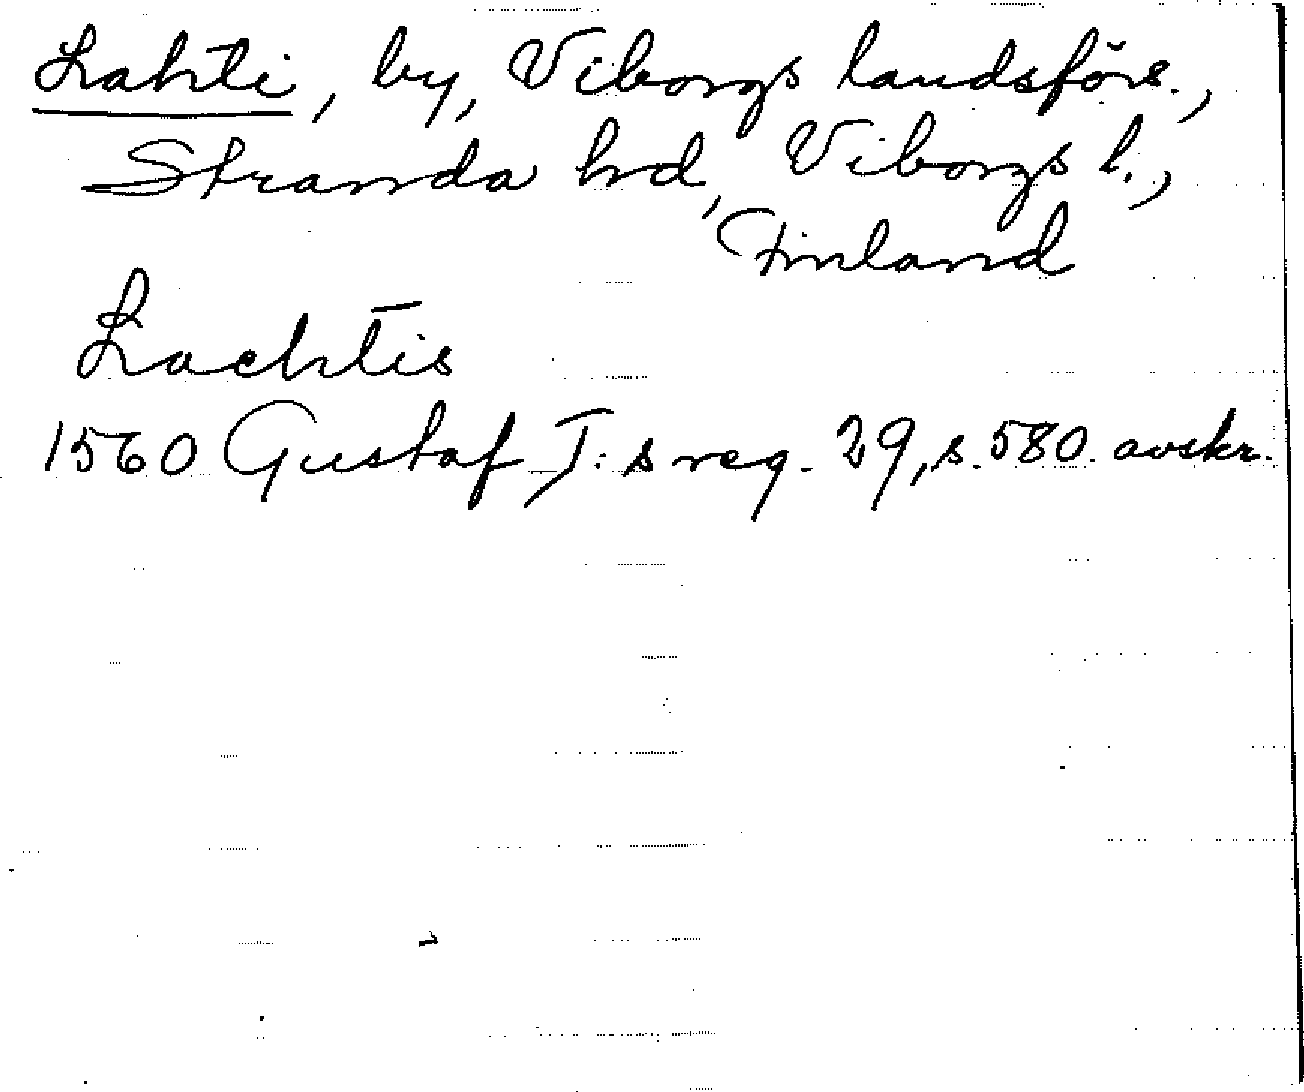 Lahti, by, Viborgs landsförs.,
Stranda hd, Viborgs l.,
Finland
Lachtis
1560 Gustaf I:s reg. 29, s. 580. avskr.